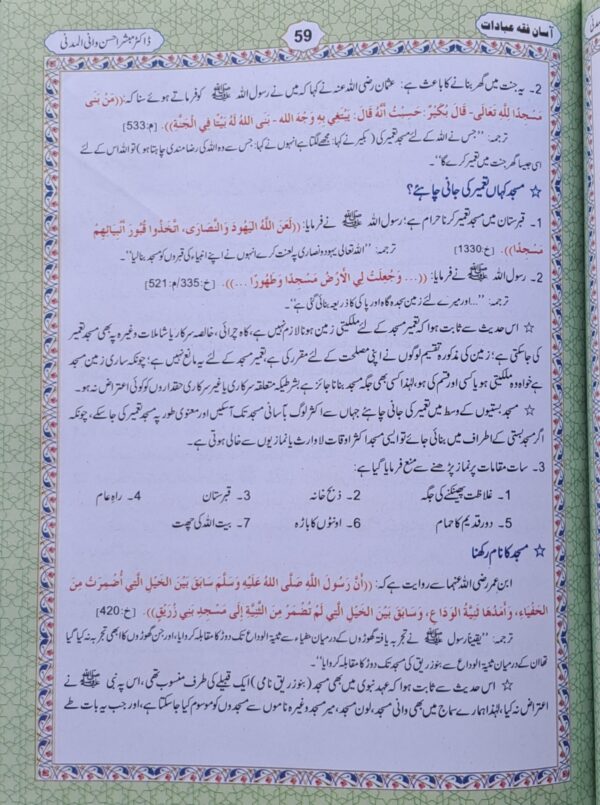 آسان فقہ عبادات
59
ڈاکٹر مبشر احسن وانی المدنی
2۔ یہ جنت میں گھر بنانے کا باعث ہے: عثمان رضی اللہ عنہ نے کہا کہ میں نے رسول اللہ ﷺ کو فرماتے ہوئے سنا کہ: ((مَنْ بَنَى
مَسْجِدًا لِلَّهِ تَعَالَى- قَالَ بُكَيْرٌ: حَسِبْتُ أَنَّهُ قَالَ: يَبْتَغِي بِهِ وَجْهَ الله - بَنَى اللهُ لَهُ بَيْتًا فِي الْجَنَّةِ)). [م:533]
ترجمہ: ’’جس نے اللہ کے لئے مسجد تعمیر کی (بکیر نے کہا: مجھے لگتا ہے انہوں نے کہا: جس سے وہ اللہ کی رضا مندی چاہتا ہو) تو اللہ اس کے لئے
اسی جیسا گھر جنت میں تعمیر کرے گا‘‘۔
☆ مسجد کہاں تعمیر کی جانی چاہئے؟
1۔ قبرستان میں مسجد تعمیر کرنا حرام ہے؛ رسول اللہ ﷺ نے فرمایا: ((لَعَنَ اللَّهُ الْيَهُودَ وَالنَّصَارَى، اتَّخَذُوا قُبُورَ أَنْبِيَائِهِمْ
مَسْجِدًا)). [خ:1330] ترجمہ: ’’اللہ تعالی یہود و نصاری پر لعنت کرے انہوں نے اپنے انبیاء کی قبروں کو مسجد بنا لیا‘‘۔
2۔ رسول اللہ ﷺ نے فرمایا: ((... وَجُعِلَتْ لِي الْأَرْضُ مَسْجِدًا وَطَهُورًا ...)). [خ:335/م:521]
ترجمہ: ’’...اور میرے لئے زمین سجدہ گاہ اور پاکی کا ذریعہ بنائی گئی ہے‘‘۔
☆ اس حدیث سے ثابت ہوا کہ تعمیر مسجد کے لئے ملکیتی زمین ہونا لازم نہیں ہے، کاہ چرائی، خالصہ سرکار یا شاملات وغیرہ پہ بھی مسجد تعمیر
کی جاسکتی ہے؛ زمین کی مذکورہ تقسیم لوگوں نے اپنی مصلحت کے لئے مقرر کی ہے، تعمیر مسجد کے لئے یہ مانع نہیں ہے؛ چونکہ ساری زمین مسجد
ہے خواہ وہ ملکیتی ہو یا کسی اور قسم کی ہو، لہٰذا کسی بھی جگہ مسجد بنانا جائز ہے بشرطیکہ متعلقہ سرکاری یا غیر سرکاری حقداروں کو کوئی اعتراض نہ ہو۔
☆ مسجد بستیوں کے وسط میں تعمیر کی جانی چاہئے جہاں سے اکثر لوگ بآسانی مسجد تک آسکیں اور معنوی طور پہ مسجد تعمیر کی جاسکے، چونکہ
اگر مسجد بستی کے اطراف میں بنائی جائے تو ایسی مسجد اکثر اوقات لاوارث یا نمازیوں سے خالی ہوتی ہے۔
3۔ سات مقامات پر نماز پڑھنے سے منع فرمایا گیا ہے:
1۔ غلاظت پھینکنے کی جگہ 2۔ ذبح خانہ 3۔ قبرستان 4۔ راہِ عام
5۔ دور قدیم کا حمام 6۔ اونٹوں کا باڑہ 7۔ بیت اللہ کی چھت
☆ مسجد کا نام رکھنا
ابن عمر رضی اللہ عنہما سے روایت ہے کہ: ((أَنَّ رَسُولَ اللَّهِ صَلَّى اللهُ عَلَيْهِ وَسَلَّمَ سَابَقَ بَيْنَ الْخَيْلِ الَّتِي أُضْمِرَتْ مِنَ
الْحَفْيَاءِ، وَأَمَدُهَا ثَنِيَّةُ الْوَدَاعِ، وَسَابَقَ بَيْنَ الْخَيْلِ الَّتِي لَمْ تُضْمَرْ مِنَ الثَّنِيَّةِ إِلَى مَسْجِدِ بَنِي زُرَيْقٍ)). [خ:420]
ترجمہ: ’’یقیناً رسول ﷺ نے تجربہ یافتہ گھوڑوں کے درمیان حفیاء سے ثنیۃ الوداع تک دوڑ کا مقابلہ کروایا، اور جن گھوڑوں کا ابھی تجربہ نہ کیا گیا
تھا ان کے درمیان ثنیۃ الوداع سے بنو زریق کی مسجد تک دوڑ کا مقابلہ کروایا‘‘۔
☆ اس حدیث سے ثابت ہوا کہ عہد نبوی میں بھی مسجد (بنو زریق نامی) ایک قبیلے کی طرف منسوب تھی، اس پہ نبی ﷺ نے
اعتراض نہ کیا، لہٰذا ہمارے سماج میں بھی وانی مسجد، لون مسجد، میر مسجد وغیرہ ناموں سے مسجدوں کو موسوم کیا جاسکتا ہے، اور جب یہ بات طے